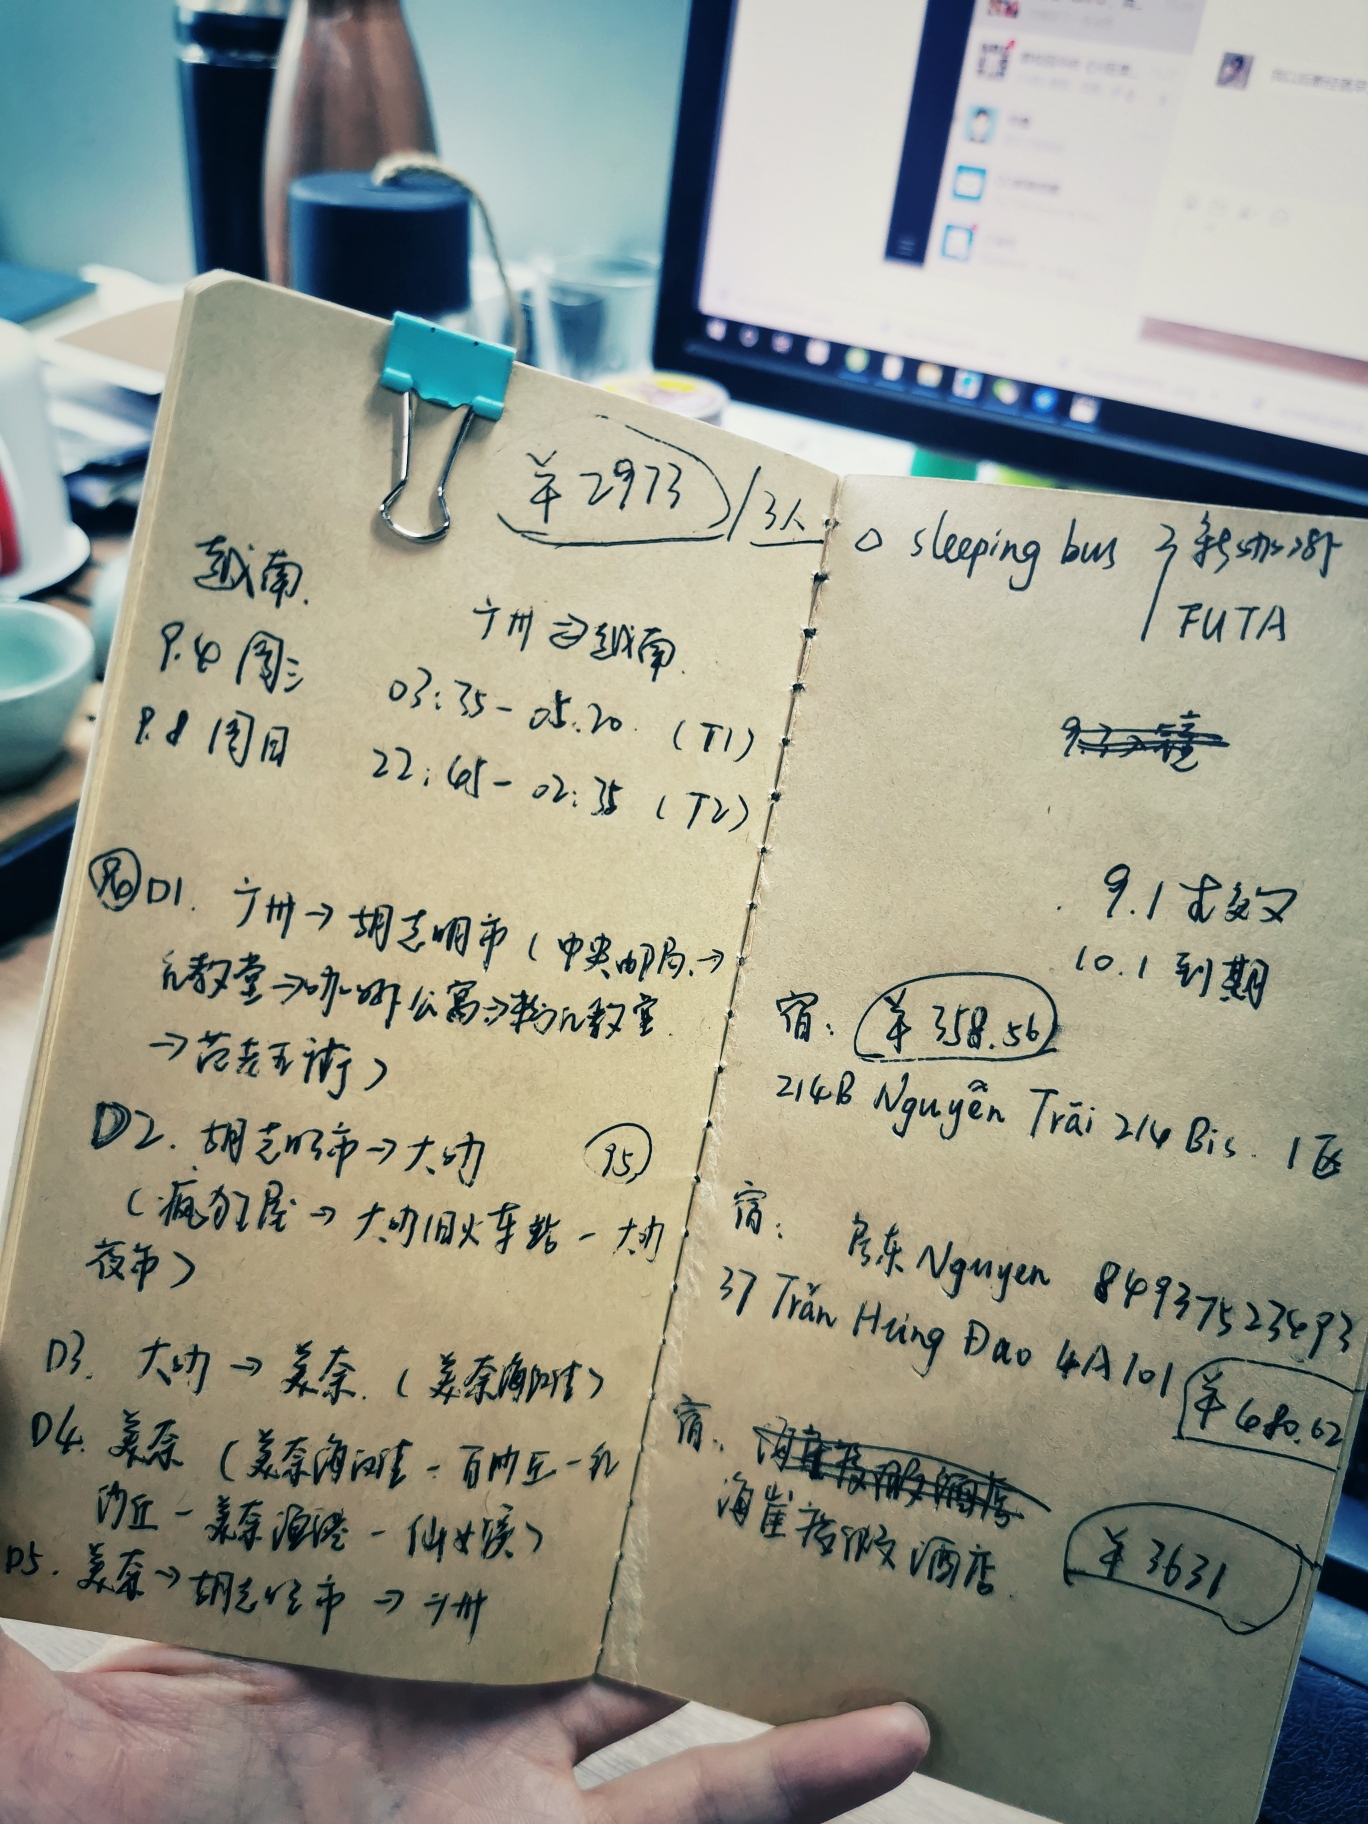 ¥2973/3人
越南.
广州⇄越南.
9.4 周三 03:35-05:20. (T1)
9.8 周日 22:45-02:35 (T2)
D1. 广州→胡志明市(中央邮局→
红教堂→咖啡公寓→粉红教堂
→范老五街)
D2. 胡志明市→大叻 95
(疯狂屋→大叻旧火车站-大叻
夜市)
D3. 大叻→美奈.(美奈海滩)
D4. 美奈(美奈海滩-白沙丘-红
沙丘-美奈渔港-仙女溪)
D5. 美奈→胡志明市→广州
sleeping bus
FUTA
9.1 生效
10.1 到期
宿: ¥358.56
214B Nguyễn Trãi 214 Bis. 1区
宿: 房东 Nguyen 84937523493
37 Trần Hưng Đạo 4A101 ¥680.62
宿:
海崖度假酒店 ¥3631